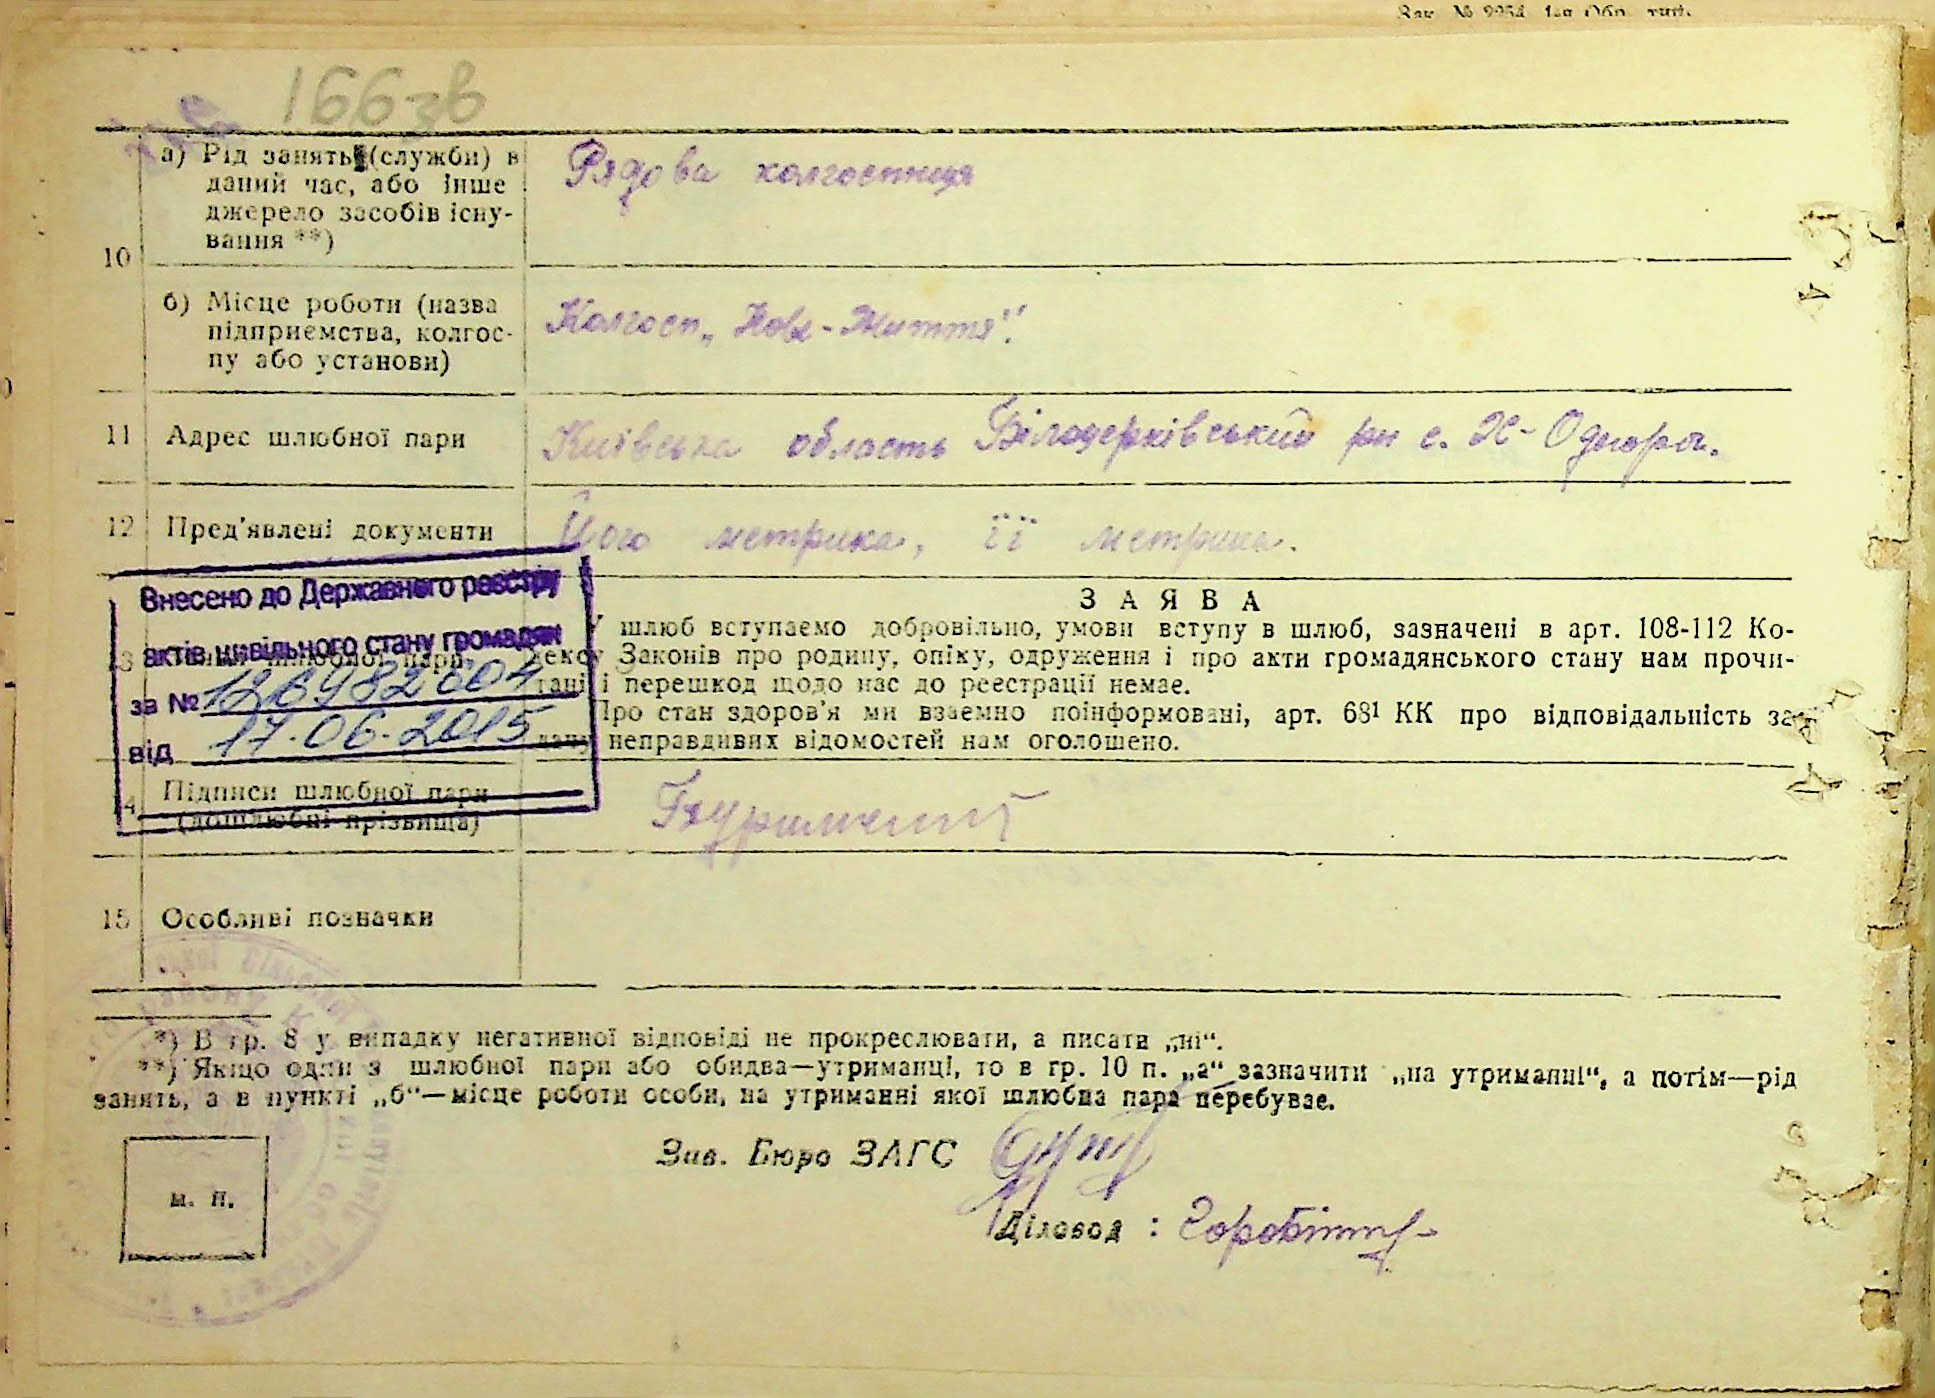 Зак. № 2254 1-я Обр. тип.
166зв
а) Рід занять (служби) в
даний час, або інше
джерело засобів існу-
вання **)
Рядова колгоспниця
10
б) Місце роботи (назва
підприємства, колгос-
пу або установи)
Колгосп „Нове-Життя“.
11 Адрес шлюбної пари
Київська область Білоцерківський рн с.
12 Пред'явлені документи
Його метрика, її метрика.
Внесено до Державного реєстру
актів цивільного стану громадян
за №
від 17.06.2015
13 шлюбної пари
ЗАЯВА
У шлюб вступаємо добровільно, умови вступу в шлюб, зазначені в арт. 108-112 Ко-
дексу Законів про родину, опіку, одруження і про акти громадянського стану нам прочи-
тані і перешкод щодо нас до реєстрації немає.
Про стан здоров'я ми взаємно поінформовані, арт. 68¹ КК про відповідальність за
дачу неправдивих відомостей нам оголошено.
14 Підписи шлюбної пари
(дошлюбні прізвища)
15 Особливі позначки
*) В гр. 8 у випадку негативної відповіді не прокреслювати, а писати „ні“.
**) Якщо один з шлюбної пари або обидва—утриманці, то в гр. 10 п. „а“ зазначити „на утриманні“, а потім—рід
занять, а в пункті „б“—місце роботи особи, на утриманні якої шлюбна пара перебуває.
Зав. Бюро ЗАГС
м. п.
Діловод :